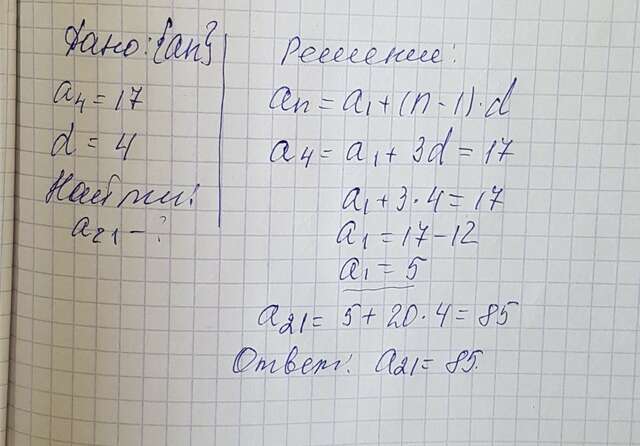 Дано: {an}
a4 = 17
d = 4
Найти:
a21 - ?
Решение:
an = a1 + (n - 1) · d
a4 = a1 + 3d = 17
a1 + 3 · 4 = 17
a1 = 17 - 12
a1 = 5
a21 = 5 + 20 · 4 = 85
Ответ: a21 = 85.